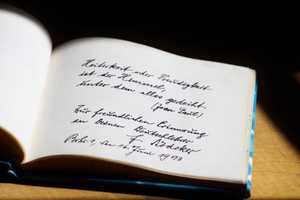 Heiterkeit oder Freudigkeit
ist der Himmel,
unter dem alles gedeiht.
(Jean Paul)
Zur freundlichen Erinnerung
an Deinen
F.
den 16. Juni